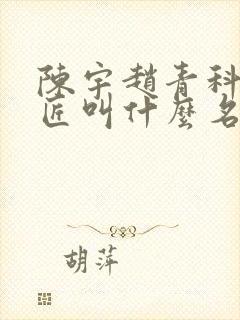 陳宇趙青科
匠叫什麼名
胡萍